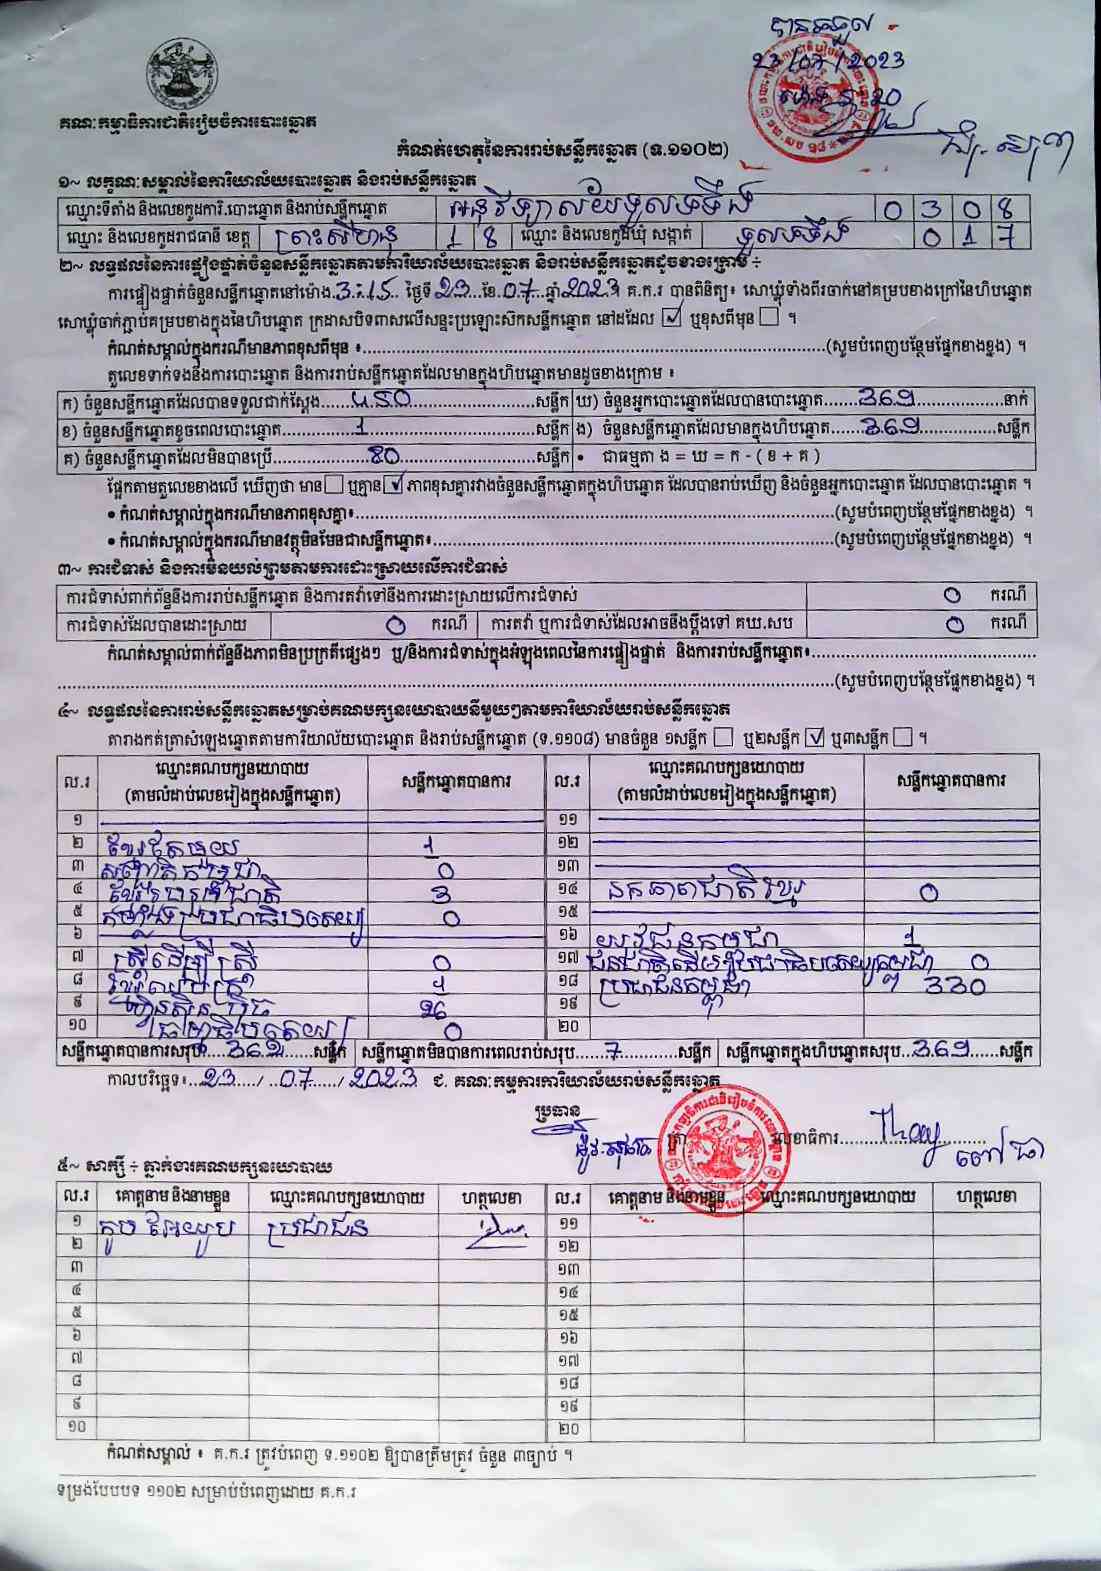 បានទទួល
23/07/2023
គណៈកម្មាធិការជាតិរៀបចំការបោះឆ្នោត
កំណត់ហេតុនៃការរាប់សន្លឹកឆ្នោត (ទ.១១០២)
១~ លក្ខណៈសម្គាល់នៃការិយាល័យបោះឆ្នោត និងរាប់សន្លឹកឆ្នោត
ឈ្មោះទីតាំង និងលេខកូដការិ.បោះឆ្នោត និងរាប់សន្លឹកឆ្នោត អនុវិទ្យាល័យទួលទទឹង 0 3 0 8
ឈ្មោះ និងលេខកូដរាជធានី ខេត្ត ព្រះសីហនុ 1 8 ឈ្មោះ និងលេខកូដឃុំ សង្កាត់ ទួលទទឹង 0 1 7
២~ លទ្ធផលនៃការផ្ទៀងផ្ទាត់ចំនួនសន្លឹកឆ្នោតតាមការិយាល័យបោះឆ្នោត និងរាប់សន្លឹកឆ្នោតដូចខាងក្រោម ÷
ការផ្ទៀងផ្ទាត់ចំនួនសន្លឹកឆ្នោតនៅម៉ោង 3:15 ថ្ងៃទី 23 ខែ 07 ឆ្នាំ 2023 ។ គ.ក.រ បានពិនិត្យ៖ សោឃ្លុំទាំងពីរចាក់នៅគម្របខាងក្រៅនៃហិបឆ្នោត
សោឃ្លុំចាក់ភ្ជាប់គម្របខាងក្នុងនៃហិបឆ្នោត ក្រដាសបិទពាសលើសន្ទះប្រឡោះស៊កសន្លឹកឆ្នោត នៅដដែល ☑ ឬខុសពីមុន ☐ ។
កំណត់សម្គាល់ក្នុងករណីមានភាពខុសពីមុន ៖ (សូមបំពេញបន្ថែមផ្នែកខាងខ្នង) ។
តួលេខទាក់ទងនឹងការបោះឆ្នោត និងការរាប់សន្លឹកឆ្នោតដែលមានក្នុងហិបឆ្នោតមានដូចខាងក្រោម ៖
ក) ចំនួនសន្លឹកឆ្នោតដែលបានទទួលជាក់ស្ដែង 450 សន្លឹក ឃ) ចំនួនអ្នកបោះឆ្នោតដែលបានបោះឆ្នោត 369 នាក់
ខ) ចំនួនសន្លឹកឆ្នោតខូចពេលបោះឆ្នោត 1 សន្លឹក ង) ចំនួនសន្លឹកឆ្នោតដែលមានក្នុងហិបឆ្នោត 369 សន្លឹក
គ) ចំនួនសន្លឹកឆ្នោតដែលមិនបានប្រើ 80 សន្លឹក • ជាធម្មតា ង = ឃ = ក - ( ខ + គ )
ផ្អែកតាមតួលេខខាងលើ ឃើញថា មាន ☐ ឬគ្មាន ☑ ភាពខុសគ្នារវាងចំនួនសន្លឹកឆ្នោតក្នុងហិបឆ្នោត ដែលបានរាប់ឃើញ និងចំនួនអ្នកបោះឆ្នោត ដែលបានបោះឆ្នោត ។
• កំណត់សម្គាល់ក្នុងករណីមានភាពខុសគ្នា៖ (សូមបំពេញបន្ថែមផ្នែកខាងខ្នង) ។
• កំណត់សម្គាល់ក្នុងករណីមានវត្ថុមិនមែនជាសន្លឹកឆ្នោត៖ (សូមបំពេញបន្ថែមផ្នែកខាងខ្នង) ។
៣~ ការជំទាស់ និងការមិនយល់ព្រមតាមការដោះស្រាយលើការជំទាស់
ការជំទាស់ពាក់ព័ន្ធនឹងការរាប់សន្លឹកឆ្នោត និងការតវ៉ាទៅនឹងការដោះស្រាយលើការជំទាស់ 0 ករណី
ការជំទាស់ដែលបានដោះស្រាយ 0 ករណី ការតវ៉ា ឬការជំទាស់ដែលអាចនឹងប្ដឹងទៅ គឃ.សប 0 ករណី
កំណត់សម្គាល់ពាក់ព័ន្ធនឹងភាពមិនប្រក្រតីផ្សេងៗ ឬ/និងការជំទាស់ក្នុងអំឡុងពេលនៃការផ្ទៀងផ្ទាត់ និងការរាប់សន្លឹកឆ្នោត៖
(សូមបំពេញបន្ថែមផ្នែកខាងខ្នង) ។
៤~ លទ្ធផលនៃការរាប់សន្លឹកឆ្នោតសម្រាប់គណបក្សនយោបាយនីមួយៗតាមការិយាល័យរាប់សន្លឹកឆ្នោត
តារាងកត់ត្រាសំឡេងឆ្នោតតាមការិយាល័យបោះឆ្នោត និងរាប់សន្លឹកឆ្នោត (ទ.១១០៨) មានចំនួន ១សន្លឹក ☐ ឬ២សន្លឹក ☑ ឬ៣សន្លឹក ☐ ។
ល.រ ឈ្មោះគណបក្សនយោបាយ សន្លឹកឆ្នោតបានការ ល.រ ឈ្មោះគណបក្សនយោបាយ សន្លឹកឆ្នោតបានការ
(តាមលំដាប់លេខរៀងក្នុងសន្លឹកឆ្នោត) (តាមលំដាប់លេខរៀងក្នុងសន្លឹកឆ្នោត)
១ ១១
២ ខ្មែរតែមួយ 1 ១២
៣ សញ្ជាតិកម្ពុជា 0 ១៣
៤ 3 ១៤ ឯកភាពជាតិខ្មែរ 0
៥ កម្លាំងប្រជាធិបតេយ្យ 0 ១៥
៦ ១៦ យុវជនកម្ពុជា 1
៧ ស្រីដើម្បីស្រី 0 ១៧ ជនជាតិដើមប្រជាធិបតេយ្យកម្ពុជា 0
៨ ១៨ ប្រជាជនកម្ពុជា 330
៩ ហ្វ៊ុនស៊ិនប៉ិច 26 ១៩
១០ ធម្មាធិបតេយ្យ 0 ២០
សន្លឹកឆ្នោតបានការសរុប 362 សន្លឹក សន្លឹកឆ្នោតមិនបានការពេលរាប់សរុប 7 សន្លឹក សន្លឹកឆ្នោតក្នុងហិបឆ្នោតសរុប 369 សន្លឹក
កាលបរិច្ឆេទ៖ 23 / 07 / 2023 ជ. គណៈកម្មការការិយាល័យរាប់សន្លឹកឆ្នោត
ប្រធាន
ត្រា លេខាធិការ
៥~ សាក្សី ÷ ភ្នាក់ងារគណបក្សនយោបាយ
ល.រ គោត្តនាម និងនាមខ្លួន ឈ្មោះគណបក្សនយោបាយ ហត្ថលេខា ល.រ គោត្តនាម និងនាមខ្លួន ឈ្មោះគណបក្សនយោបាយ ហត្ថលេខា
១ ប្រជាជន ១១
២ ១២
៣ ១៣
៤ ១៤
៥ ១៥
៦ ១៦
៧ ១៧
៨ ១៨
៩ ១៩
១០ ២០
កំណត់សម្គាល់ ៖ គ.ក.រ ត្រូវបំពេញ ទ.១១០២ ឱ្យបានត្រឹមត្រូវ ចំនួន ៣ច្បាប់ ។
ទម្រង់បែបបទ ១១០២ សម្រាប់បំពេញដោយ គ.ក.រ